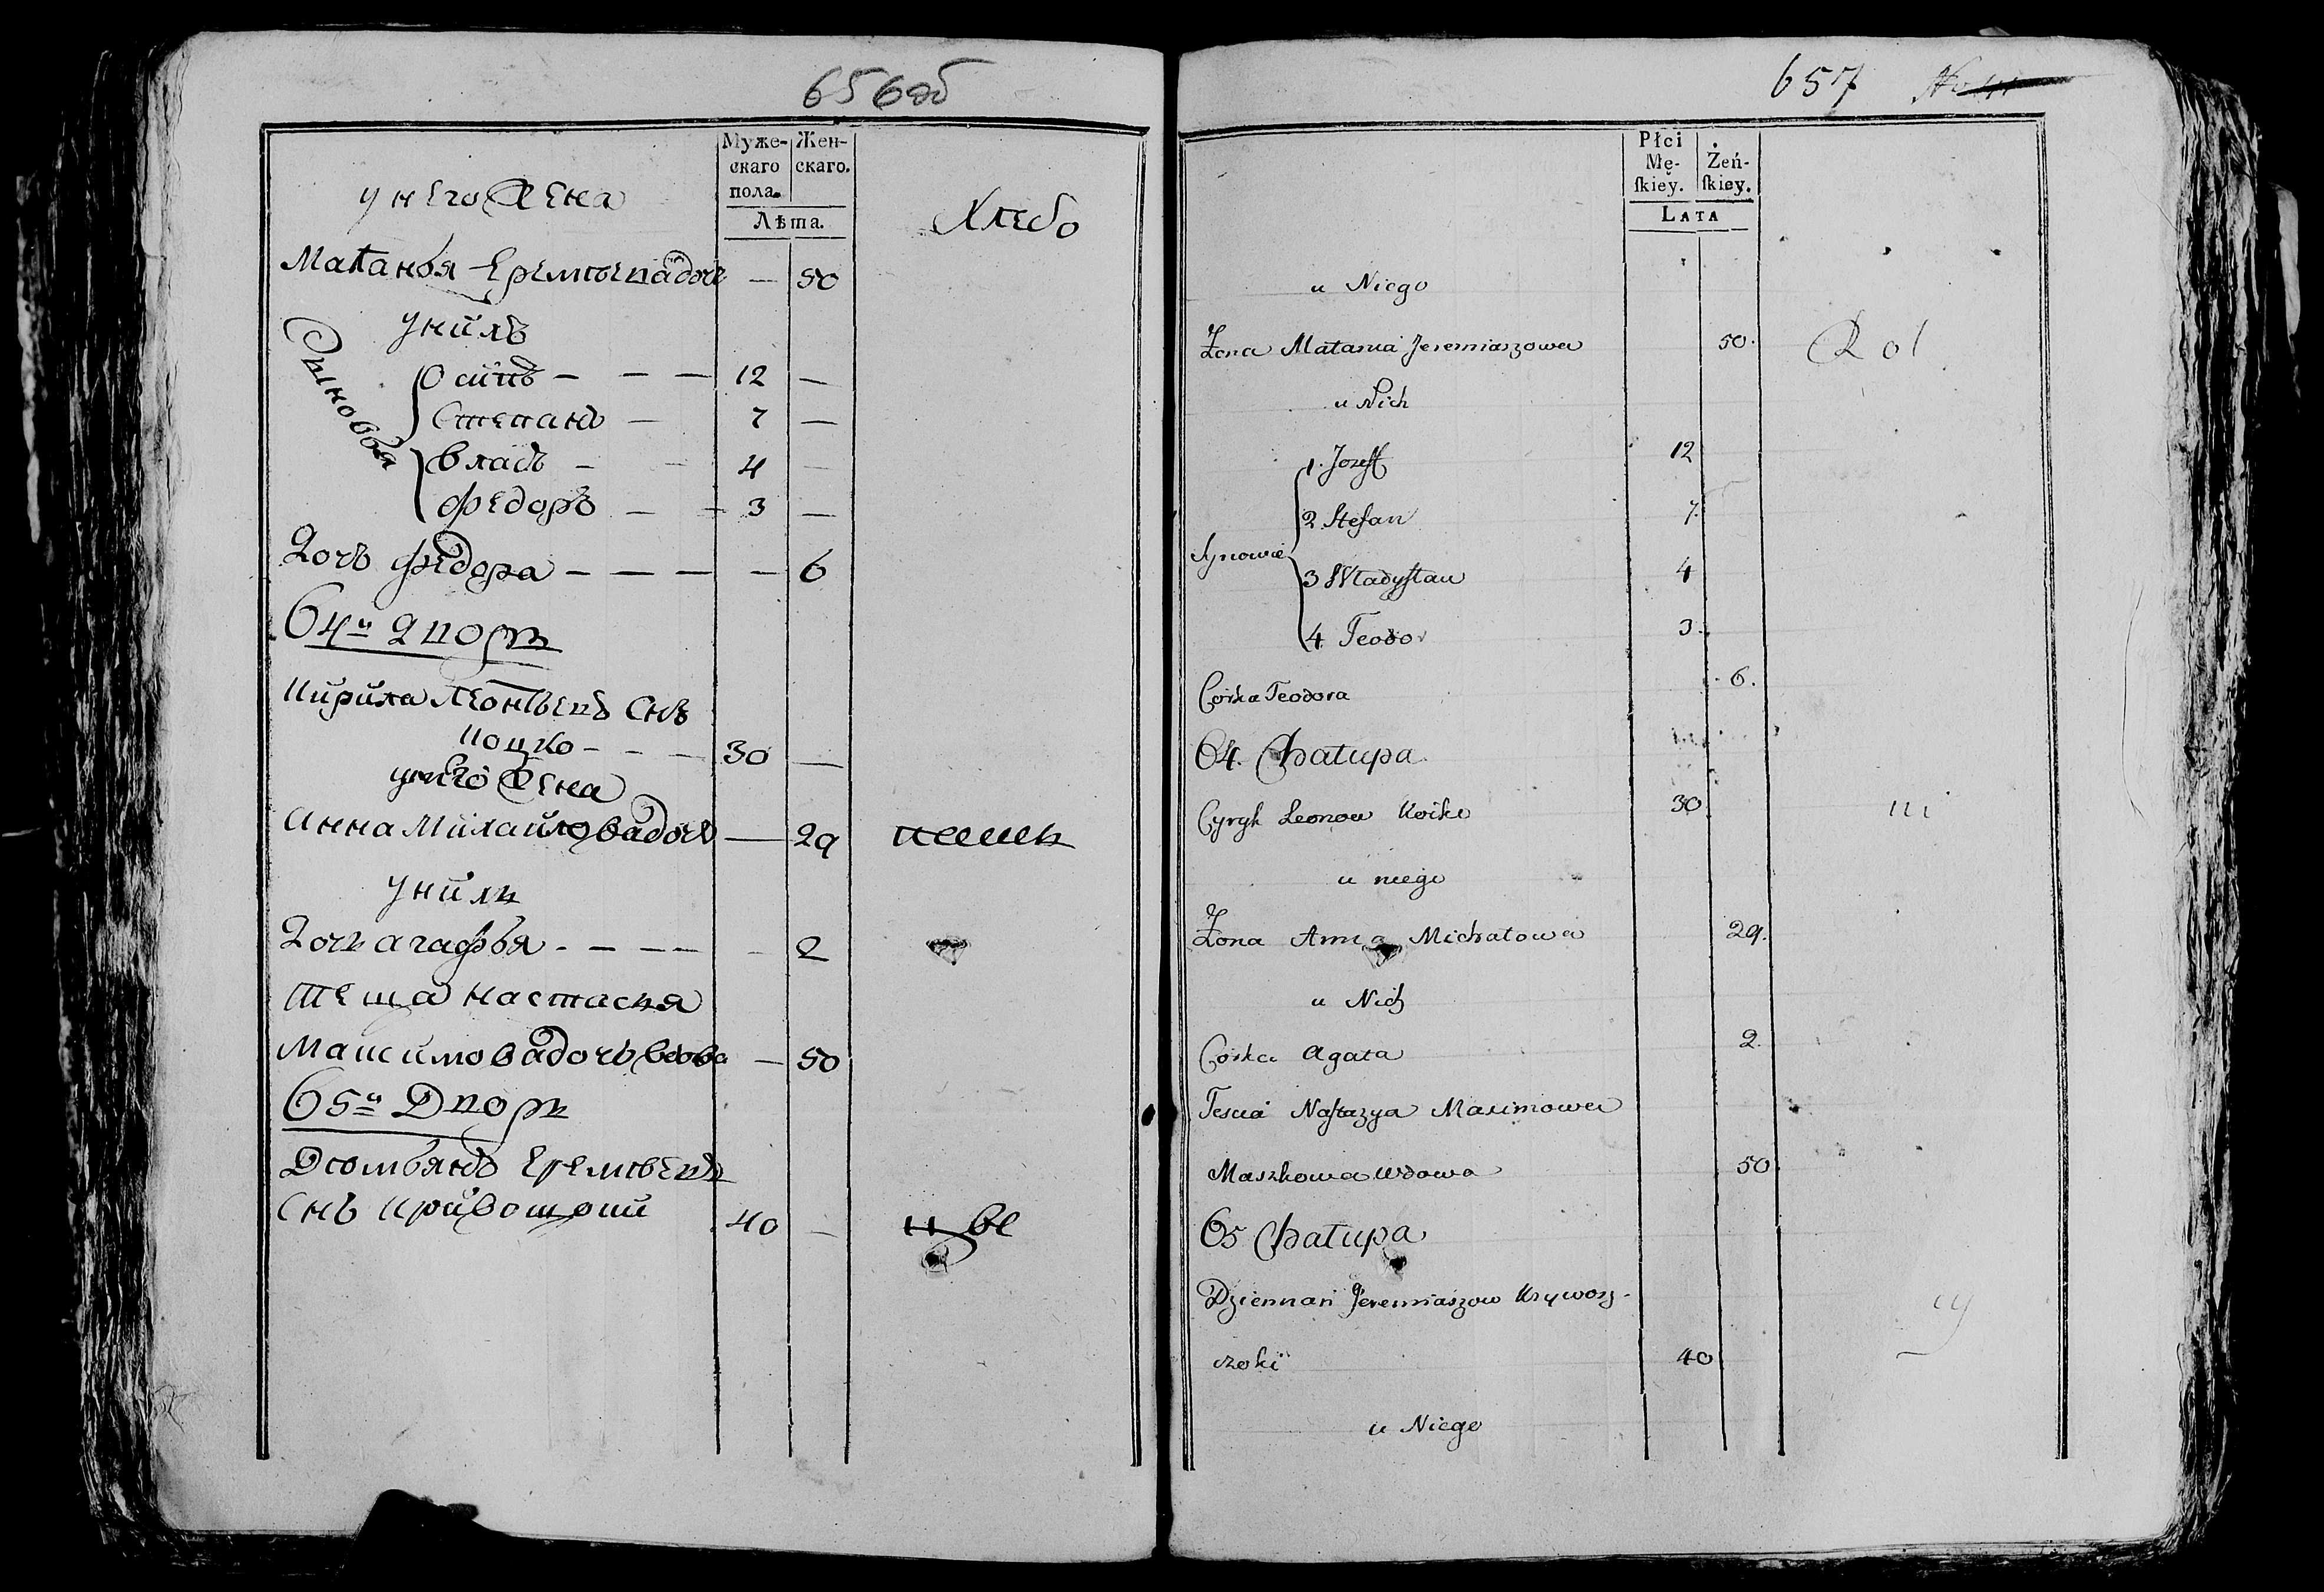 656об
Муже-
скаго
пола.
Жен-
скаго.
Лѣта.
у него Жена
Хлебо
Маланья Еремѣева дочь — 50
у нихъ
Сыновья
Осипъ — — — 12 —
Степанъ — 7 —
Владъ — — 4 —
Федоръ — — 3 —
Дочь Федора — — — — 6
64й Дворъ
Кирила Леонтьевъ Снъ
Коцко — — — 30 —
у него Жена
Анна Михайлова дочь — 29
у нихъ
Дочь Агафья — — — — 2
Теща Настасья
Максимова дочь вдова — 50
65й Дворъ
Еремѣевъ
Снъ 40 —
657
Płci
Mę-
skiey.
Żeń-
skiey.
LATA
u Niego
Żona Matania Jeremiaszowa 50.
Rol
u Nich
Synowie
1. Jozeff 12
2 Stefan 7.
3 Władysłau 4
4 Teodor 3.
Corka Teodora 6.
64. Chałupa
Cyryk Leonow Kocko 30
ni
u niego
Żona Anna Michałowa 29.
u Nich
Corka Agata 2.
Tescia Nastazya Maximowa
Maszkowa wdowa 50
65 Chałupa
Dziemian Jeremiaszow Krywosz-
czoki 40
cy
u Niego